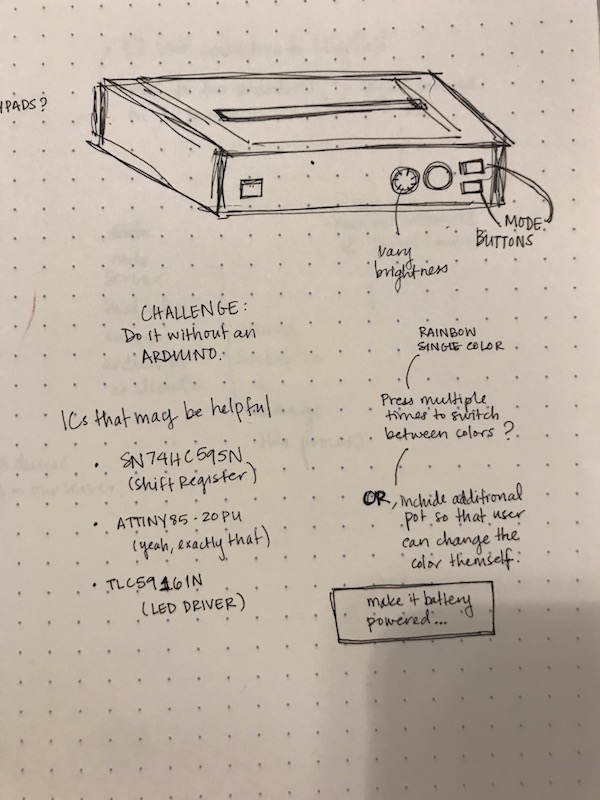 YPADS?
MODE
BUTTONS
vary
brightness
CHALLENGE:
Do it without an
ARDUINO.
ICs that may be helpful
• SN74HC595N
(shift Register)
• ATTINY85-20PU
(yeah, exactly that)
• TLC5916IN
(LED DRIVER)
RAINBOW
SINGLE COLOR
Press multiple
times to switch
between colors?
OR, include additional
pot so that user
can change the
color themself.
make it battery
powered...